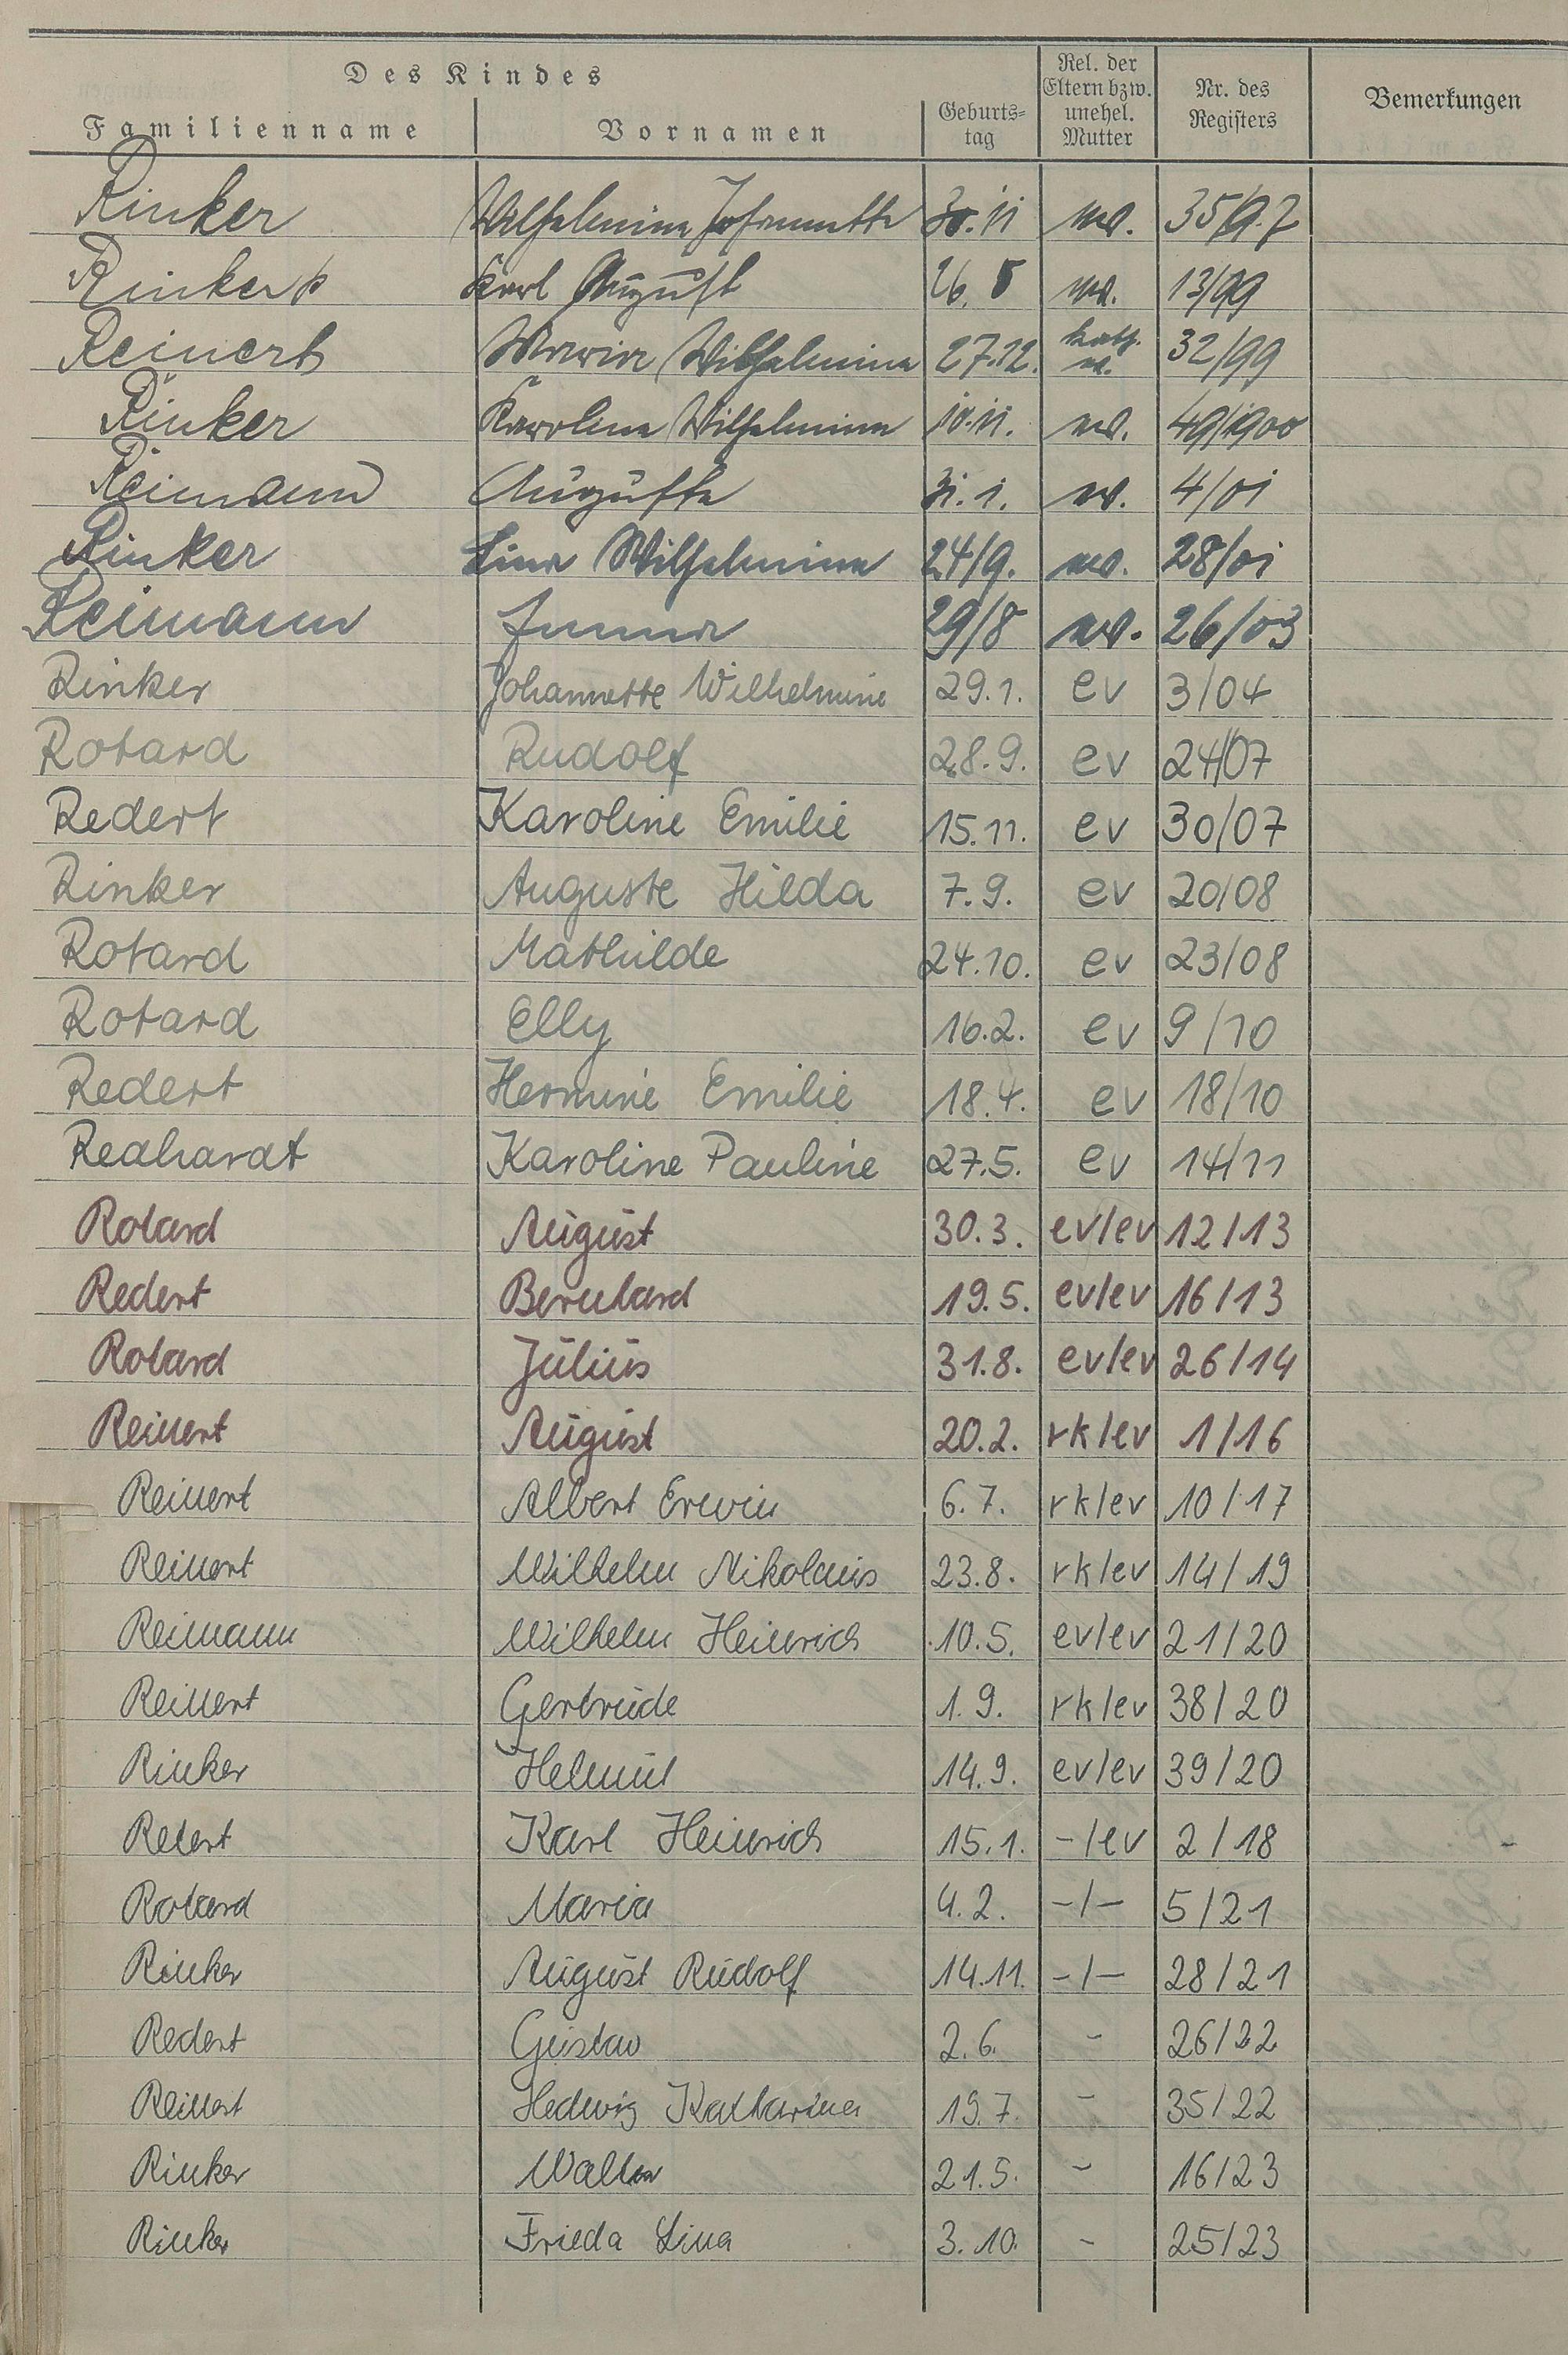 Des Kindes
Familienname Vornamen Geburts=tag Rel. der Eltern bzw. unehel. Mutter Nr. des Registers Bemerkungen
Rinker Wilhelmine Johannette 30.11 ev. 35/97
Rinker Karl August 26.5 ev. 13/99
Reinert Maria Wilhelmine 27.12. kath. ev. 32/99
Rinker Karoline Wilhelmine 10.11. ev. 49/1900
Reimann Auguste 31.1. ev. 4/01
Rinker Lina Wilhelmine 24/9. ev. 28/01
Reimann Emma 29/8 ev. 26/03
Rinker Johannette Wilhelmine 29.1. ev 3/04
Rotard Rudolf 28.9. ev 24/07
Redert Karoline Emilie 15.11. ev 30/07
Rinker Auguste Hilda 7.9. ev 20/08
Rotard Mathilde 24.10. ev 23/08
Rotard Elly 16.2. ev 9/10
Redert Hermine Emilie 18.4. ev 18/10
Redhardt Karoline Pauline 27.5. ev 14/11
Rotard August 30.3. ev/ev 12/13
Redert Bernhard 19.5. ev/ev 16/13
Rotard Julius 31.8. ev/ev 26/14
Reinert August 20.2. rk/ev 1/16
Reinert Albert Erwin 6.7. rk/ev 10/17
Reinert Wilhelm Nikolaus 23.8. rk/ev 14/19
Reimann Wilhelm Heinrich 10.5. ev/ev 21/20
Reinert Gertrude 1.9. rk/ev 38/20
Rinker Helmut 14.9. ev/ev 39/20
Retert Karl Heinrich 15.1. -/ev 2/18 -
Rotard Maria 4.2. -/- 5/21
Rinker August Rudolf 14.11. -/- 28/21
Redert Gustav 2.6. - 26/22
Reinert Hedwig Katharina 19.7. - 35/22
Rinker Walter 21.5. - 16/23
Rinker Frieda Lina 3.10. - 25/23